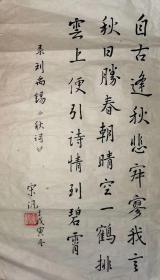 自古逢秋悲寂寥我言
秋日勝春朝晴空一鶴排
雲上便引詩情到碧霄
录刘禹锡《秋词》
戊寅冬